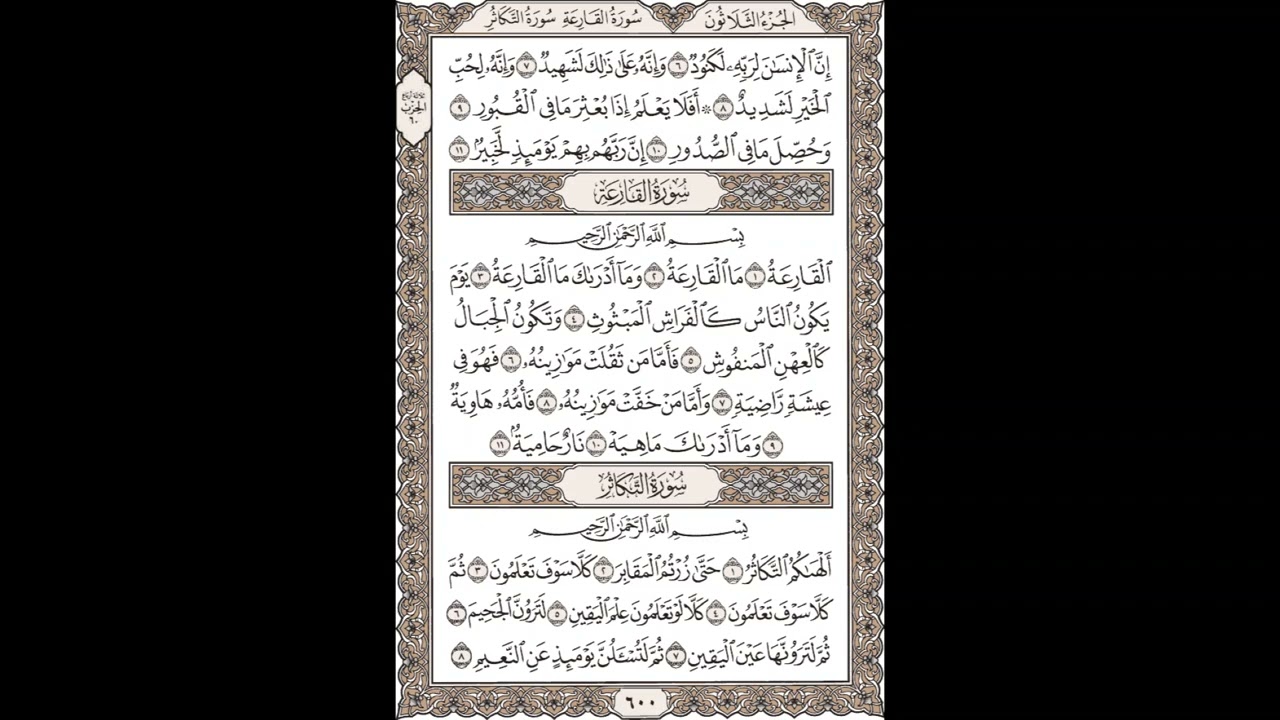 الجُزْءُ الثَّلَاثُونَ سُورَةُ القَارِعَةِ سُورَةُ التَّكَاثُرِ
إِنَّ ٱلْإِنسَٰنَ لِرَبِّهِۦ لَكَنُودٌ ٦ وَإِنَّهُۥ عَلَىٰ ذَٰلِكَ لَشَهِيدٌ ٧ وَإِنَّهُۥ لِحُبِّ
ٱلْخَيْرِ لَشَدِيدٌ ٨ ۞ أَفَلَا يَعْلَمُ إِذَا بُعْثِرَ مَا فِي ٱلْقُبُورِ ٩
وَحُصِّلَ مَا فِي ٱلصُّدُورِ ١٠ إِنَّ رَبَّهُم بِهِمْ يَوْمَئِذٍ لَّخَبِيرٌۢ ١١
سُورَةُ القَارِعَةِ
بِسْمِ ٱللَّهِ ٱلرَّحْمَٰنِ ٱلرَّحِيمِ
ٱلْقَارِعَةُ ١ مَا ٱلْقَارِعَةُ ٢ وَمَآ أَدْرَىٰكَ مَا ٱلْقَارِعَةُ ٣ يَوْمَ
يَكُونُ ٱلنَّاسُ كَٱلْفَرَاشِ ٱلْمَبْثُوثِ ٤ وَتَكُونُ ٱلْجِبَالُ
كَٱلْعِهْنِ ٱلْمَنفُوشِ ٥ فَأَمَّا مَن ثَقُلَتْ مَوَٰزِينُهُۥ ٦ فَهُوَ فِي
عِيشَةٍ رَّاضِيَةٍ ٧ وَأَمَّا مَنْ خَفَّتْ مَوَٰزِينُهُۥ ٨ فَأُمُّهُۥ هَاوِيَةٌ
٩ وَمَآ أَدْرَىٰكَ مَا هِيَهْ ١٠ نَارٌ حَامِيَةٌۢ ١١
سُورَةُ التَّكَاثُرِ
بِسْمِ ٱللَّهِ ٱلرَّحْمَٰنِ ٱلرَّحِيمِ
أَلْهَىٰكُمُ ٱلتَّكَاثُرُ ١ حَتَّىٰ زُرْتُمُ ٱلْمَقَابِرَ ٢ كَلَّا سَوْفَ تَعْلَمُونَ ٣ ثُمَّ
كَلَّا سَوْفَ تَعْلَمُونَ ٤ كَلَّا لَوْ تَعْلَمُونَ عِلْمَ ٱلْيَقِينِ ٥ لَتَرَوُنَّ ٱلْجَحِيمَ ٦
ثُمَّ لَتَرَوُنَّهَا عَيْنَ ٱلْيَقِينِ ٧ ثُمَّ لَتُسْـَٔلُنَّ يَوْمَئِذٍ عَنِ ٱلنَّعِيمِ ٨
ثلاثة أرباع
الحزب
٦٠
٦٠٠